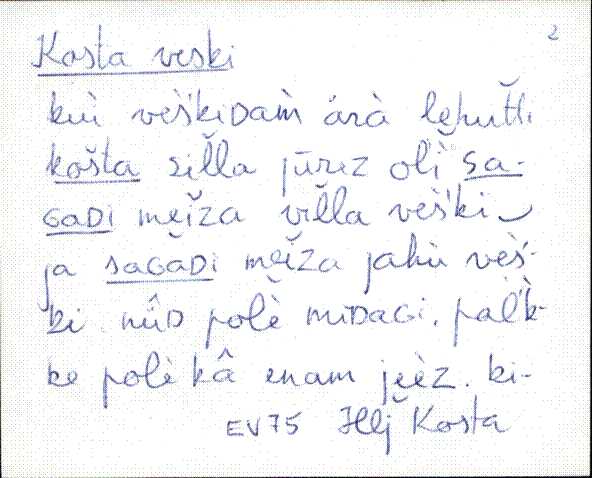 2
Kosta veski
kui veškiDam̀ ärà lẹhuťťi
košta silla jūrez oli sa-
GADi meiža viľla veški
ja saGADi meiža jahù veš-
ki. nûD polè miDAGi, palk-
ke polè kâ enam jèez. ki-
EV75 Hlj Kosta